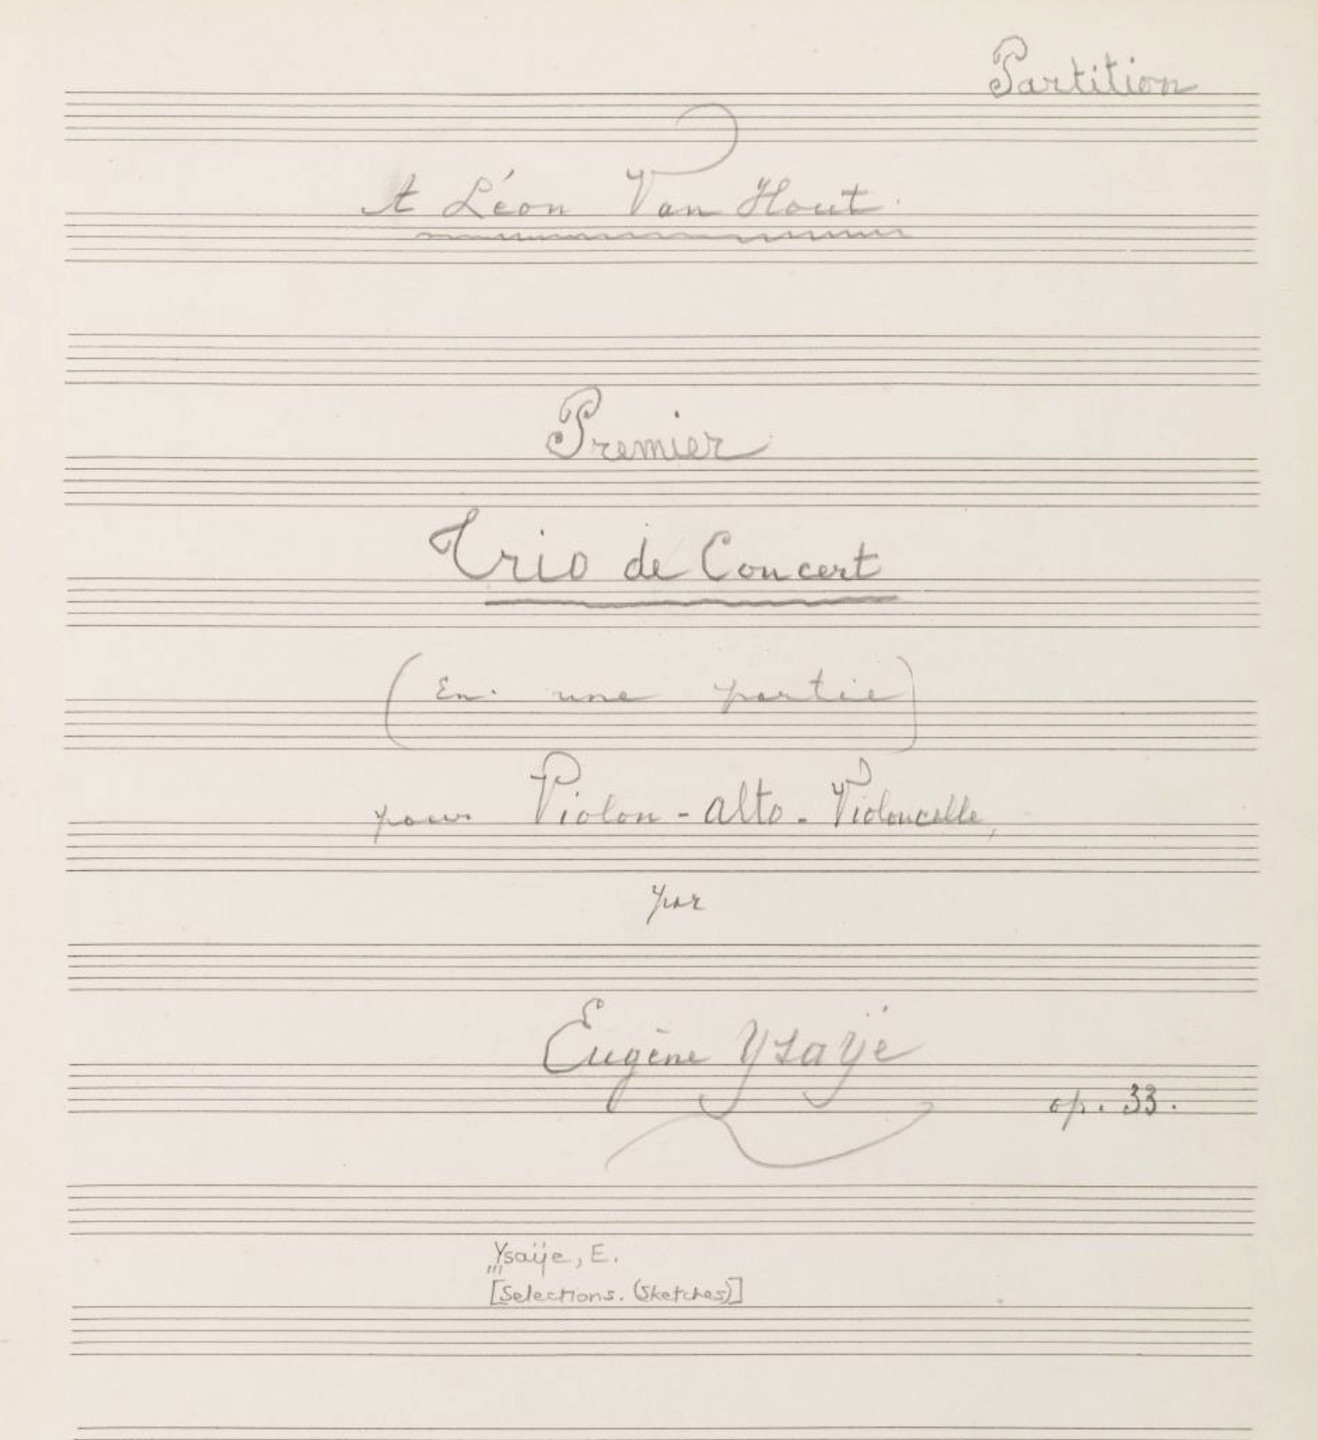 Partition
A Léon Van Hout.
Premier
Trio de Concert
(En une partie)
pour Violon - alto - Violoncelle,
par
Eugène Ysaÿe
op. 33.
Ysaÿe, E.
[Selections. (Sketches)]